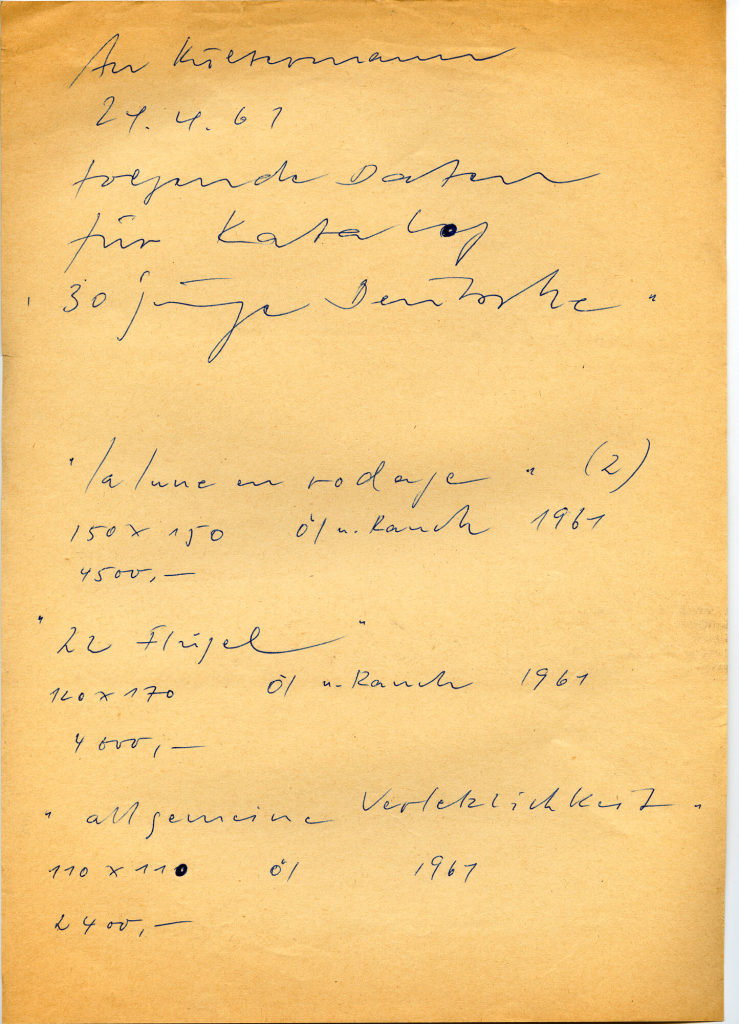 An Kultermann
24.4.61
folgende Daten
für Katalog
" 30 junge Deutsche "
" la lune en rodage " (2)
150 x 150 Öl u. Rauch 1961
4500,—
" 22 Flügel "
120 x 170 Öl u. Rauch 1961
4000,—
" allgemeine Verletzlichkeit "
110 x 110 Öl 1961
2400,—